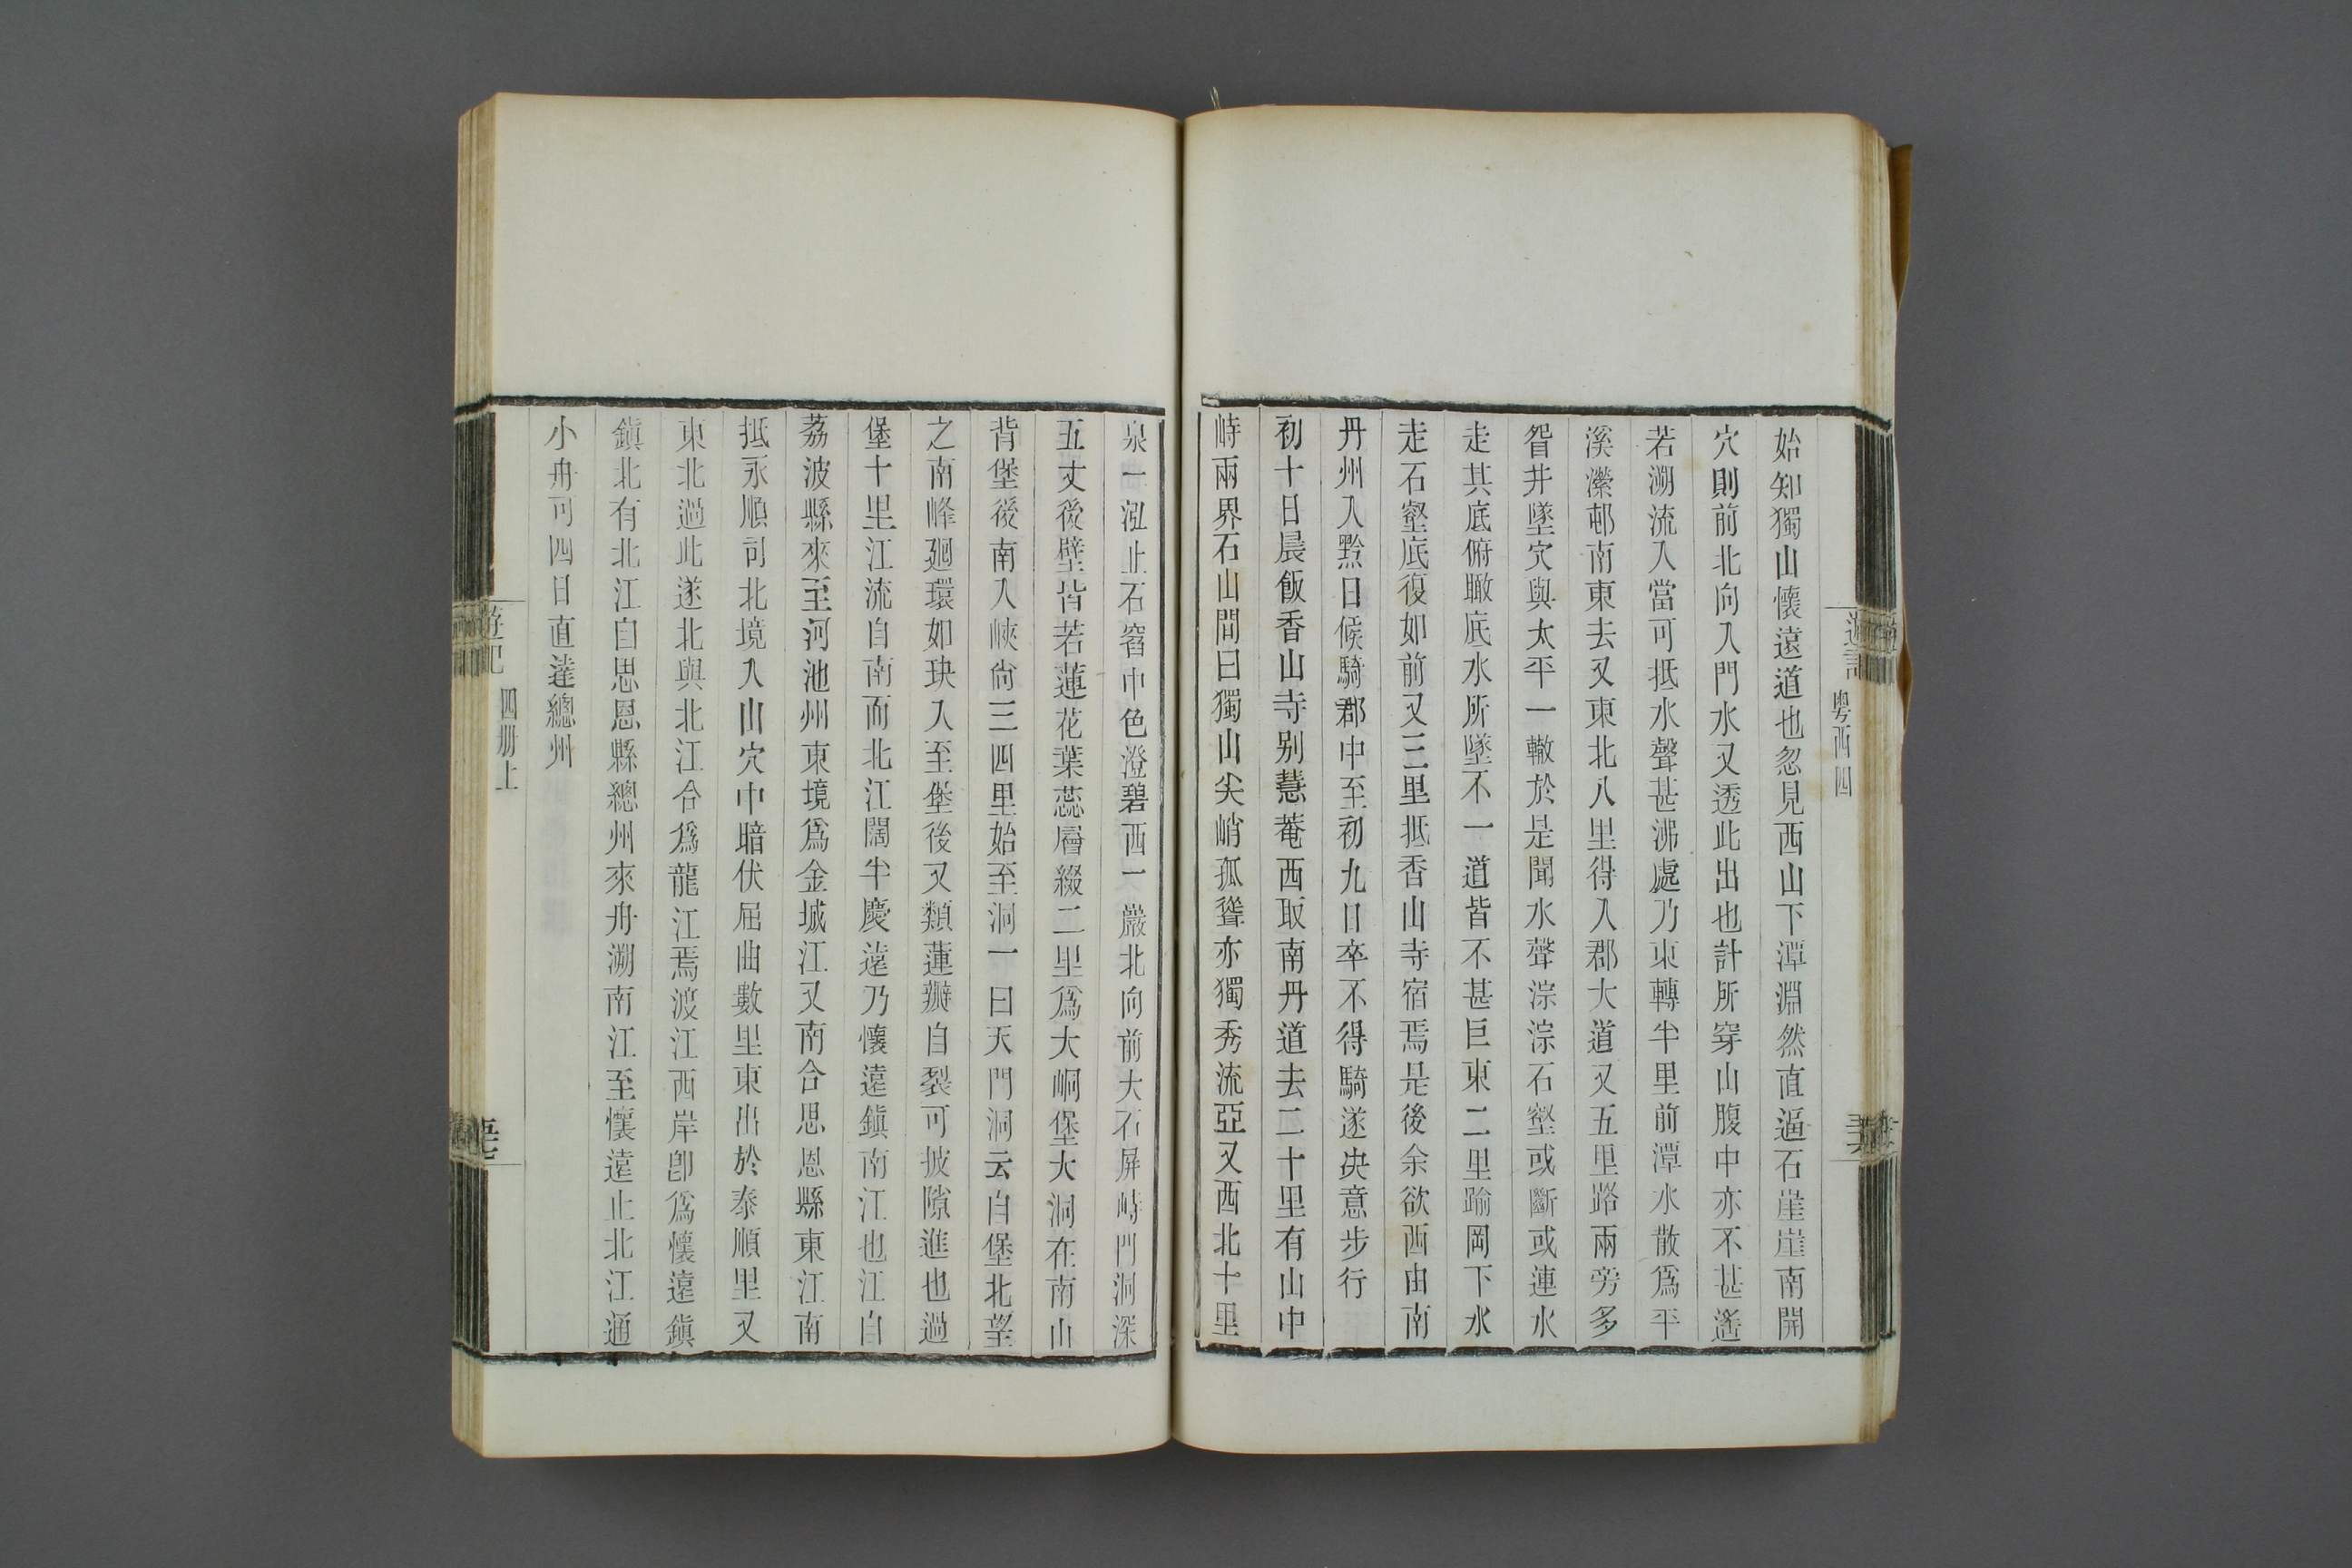 遊記 粵西四
始知獨山懷遠道也忽見西山下潭淵然直逼石崖崖南開
穴則前北向入門水又透此出也計所穿山腹中亦不甚遙
若溯流入當可抵水聲甚沸處乃東轉半里前潭水散爲平
溪瀠邨南東去又東北八里得入郡大道又五里路兩旁多
眢井墜穴與太平一轍於是聞水聲淙淙石壑或斷或連水
走其底俯瞰底水所墜不一道皆不甚巨東二里踰岡下水
走石壑底復如前又三里抵香山寺宿焉是後余欲西由南
丹州入黔日候騎郡中至初九日卒不得騎遂决意步行
初十日晨飯香山寺别慧菴西取南丹道去二十里有山中
峙兩界石山間曰獨山尖峭孤聳亦獨秀流亞又西北十里
泉一泓止石窞中色澄碧西一巖北向前大石屏峙門洞深
五丈後壁皆若蓮花葉蕊層綴二里爲大峒堡大洞在南山
背堡後南入峽尙三四里始至洞一曰天門洞云自堡北望
之南峰廻環如玦入至堡後又類蓮瓣自裂可披隙進也過
堡十里江流自南而北江闊半慶遠乃懷遠鎮南江也江自
荔波縣來至河池州東境爲金城江又南合思恩縣東江南
抵永順司北境入山穴中暗伏屈曲數里東出於泰順里又
東北過此遂北與北江合爲龍江焉渡江西岸卽爲懷遠鎮
鎮北有北江自思恩縣總州來舟溯南江至懷遠止北江通
小舟可四日直達總州
遊記 四册上